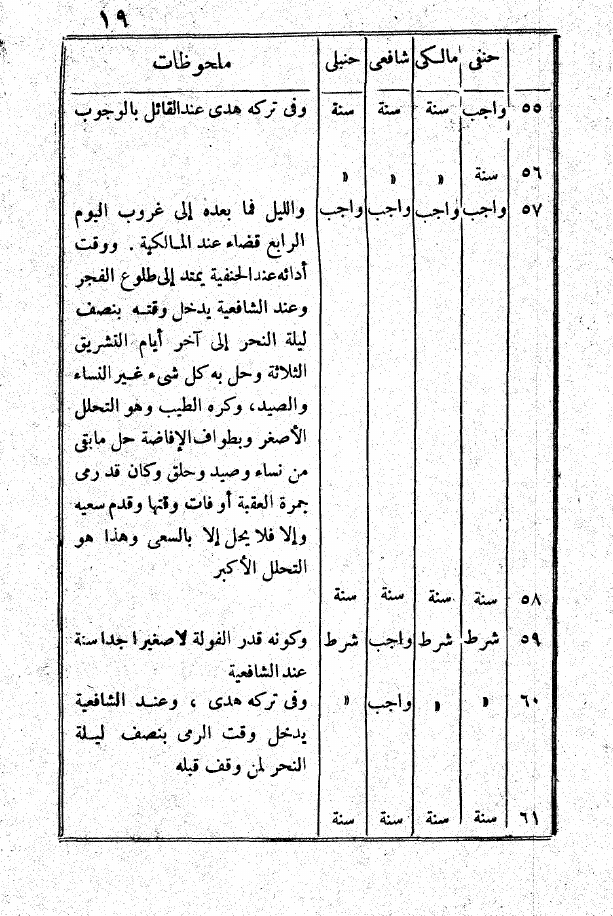 ١٩
حنفى مالكى شافعى حنبلى ملحوظات
٥٥ واجب سنة سنة سنة وفى تركه هدى عند القائل بالوجوب
٥٦ سنة » » »
٥٧ واجب واجب واجب واجب والليل فما بعده إلى غروب اليوم
الرابع قضاء عند المالكية . ووقت
أدائه عند الحنفية يمتد إلى طلوع الفجر
وعند الشافعية يدخل وقته بنصف
ليلة النحر إلى آخر أيام التشريق
الثلاثة وحل به كل شىء غير النساء
والصيد، وكره الطيب وهو التحلل
الأصغر وبطواف الإفاضة حل مابقى
من نساء وصيد وحلق وكان قد رمى
جمرة العقبة أو فات وقتها وقدم سعيه
وإلا فلا يحل إلا بالسعى وهذا هو
التحلل الأكبر
٥٨ سنة سنة سنة سنة
٥٩ شرط شرط واجب شرط وكونه قدر الفولة لاصغيرا جدا سنة
عند الشافعية
٦٠ » » واجب » وفى تركه هدى ، وعند الشافعية
يدخل وقت الرمى بنصف ليلة
النحر لمن وقف قبله
٦١ سنة سنة سنة سنة